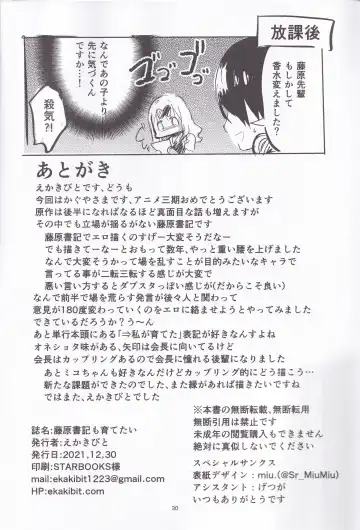 放課後
藤原先輩
もしかして
香水変えました？
なんであの子より
先に気づくん
ですか…！
ゴゴゴ
殺気?!
あとがき
えかきびとです、どうも
今回はかぐやさまです、アニメ三期おめでとうございます
原作は後半になればなるほど真面目な話も増えますが
その中でも立場が揺るがない藤原書記です
藤原書記でエロ描くのすげー大変そうだなー
でも描きてーなーとおもって数年、やっと重い腰を上げました
なんで大変そうかって場を乱すことが目的みたいなキャラで
言ってる事が二転三転する感じが大変で
悪い言い方するとダブスタっぽい感じが(だからこそ良い)
なんで前半で場を荒らす発言が後々人と関わって
意見が180度変わっていくのをエロに絡ませようとやってみました
できているだろうか？う～ん
あと単行本頭にある「⇒私が育てた」表記が好きなんすよね
オネショタ味がある、矢印は会長に向いてるけど
会長はカップリングあるので会長に憧れる後輩になりました
あとミコちゃんも好きなんだけどカップリング的にどう描こう…
新たな課題ができたのでした、また縁があれば描きたいですね
ではまた、えかきびとでした
誌名:藤原書記も育てたい
発行者:えかきびと
発行日:2021,12,30
印刷:STARBOOKS様
mail:ekakibit1223@gmail.com
HP:ekakibit.com
※本書の無断転載、無断転用
無断引用は禁止です
未成年の閲覧購入もできません
絶対に真似しないでください
スペシャルサンクス
表紙デザイン：miu.(@Sr_MiuMiu)
アシスタント：げつが
いつもありがとうです
30